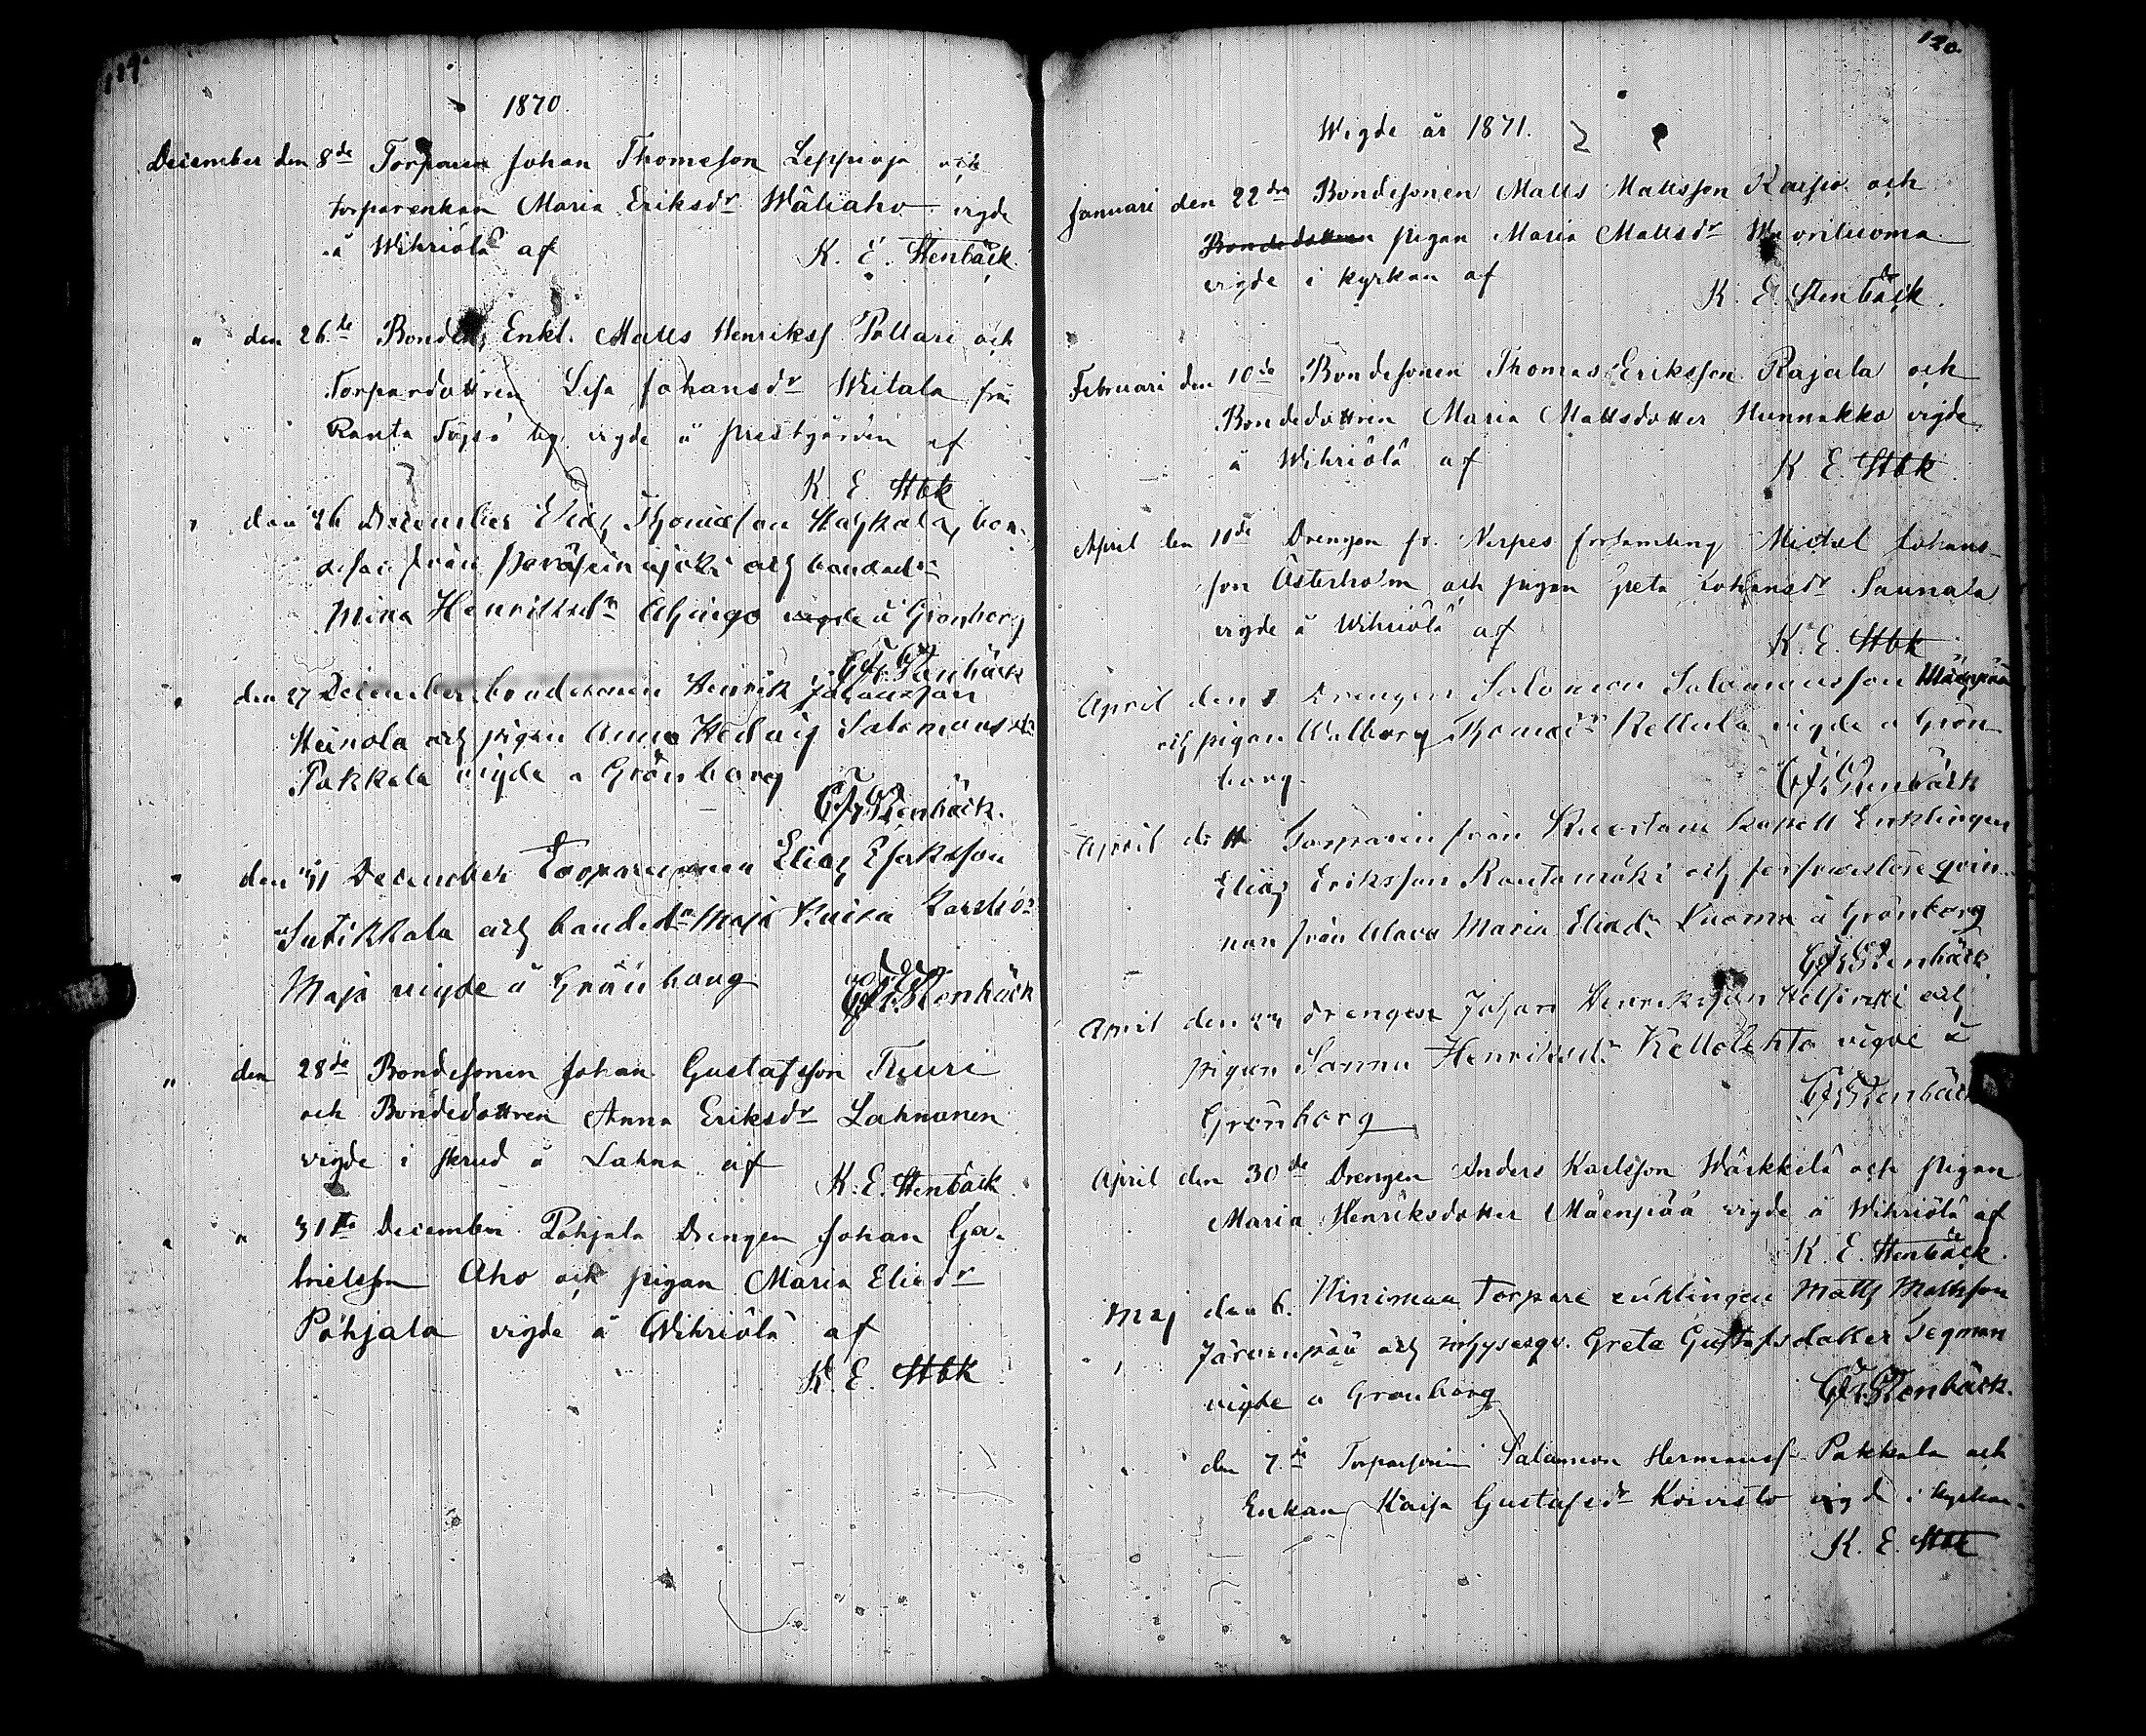 119.
1870.
December den 8de Torparen Johan Thomasson Leppioja och
torparenkan Maria Eriksdr Wäliaho vigde
å Wihriölä af K. E. Stenbäck.
" den 26te Bonden Enkl. Matts Henrikss Pollari och
Torpardottren Lisa Johansdr Witala från
Ranta Töysö by vigde å prestgården af
K. E. Stbk
" den 26 December Elias Thomasson Haapkala, bon-
deson från Peräseinäjoki och bondedr
Mina Henriksdr Alhinge vigde å Grönborg
Stenbäck
" den 27 December bondesonen Henrik Johansson
Heinola och pigan Anna Hedvig Salomonsdr
Pakkala vigde å Grönborg
Stenbäck.
" den 31 December Torparesonen Elias Esaksson
Sutikkala och bondedr Maja Kaisa
Maja vigde å Grönborg
Stenbäck
" den 28de Bondesonen Johan Gustafsson Tuuri
och Bondedottren Anna Eriksdr Lahnanen
vigde i skrud å Lahna af
K. E. Stenbäck
" " 31te December Pohjala Drengen Johan Ga-
brielsson Aho och pigan Maria Eliedr
Pohjala vigde å Wihriölä af
K. E. Stbk
120.
Wigde år 1871.
Januari den 22dra Bondesonen Matts Mattsson Kaisio och
Bondedottren pigan Maria Mattsdr Wuoriluoma
vigde i kyrkan af
K. E. Stenbäck.
Februari den 10de Bondesonen Thomas Eriksson Rajala och
Bondedottren Maria Mattsdotter Hunnakko vigde
å Wihriölä af K. E. Stbk.
April den 10de Drengen fr. Nerpes församling Mickel Johans-
son Österholm och pigan Greta Johansdr Saunala
vigde å Wihriölä af K. E. Stbk
April den 1 Drengen Salomon Salomonsson Mäenpää
och pigan Walborg Thomasdr Kettula vigde å Grön-
borg.
Stenbäck
April Torparen från Kuortane Kapell Enklingen
Elias Eriksson Rantamäki och försvarslöse qvin-
nan från Alavo Maria Eliasdr Luoma å Grönborg
Stenbäck
April den drengen Johan Henriksson och
pigan Sanna Henriksdr vigde å
Grönborg
Stenbäck
April den 30de Drengen Anders Karlsson Wärkkilä och Pigan
Maria Henriksdotter Mäenpää vigde å Wihriölä af
K. E. Stenbäck.
Maj den 6. Niniman Torpare enklingen Matts Mattsson
Järvenpää och inhysesqv. Greta Gustafsdotter Tegman
vigde å Grönborg
Stenbäck.
" den 7de Torparsonen Salamon Hermanss Pakkala och
Enkan Kaisa Gustafsdr Koivisto vigde i kyrkan
K. E. Stbk